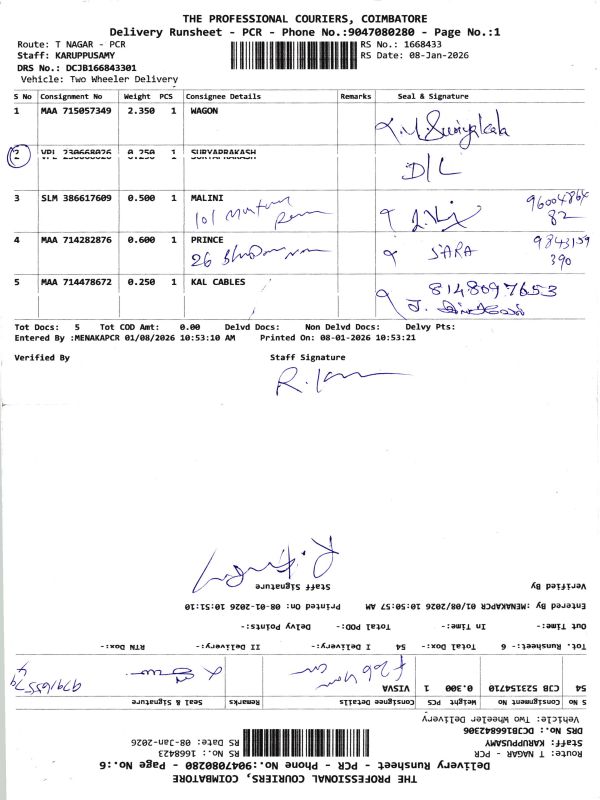 THE PROFESSIONAL COURIERS, COIMBATORE
Delivery Runsheet - PCR - Phone No.:9047080280 - Page No.:1
Route: T NAGAR - PCR
RS No.: 1668433
Staff: KARUPPUSAMY
RS Date: 08-Jan-2026
DRS No.: DCJB166843301
Vehicle: Two Wheeler Delivery
S No Consignment No Weight PCS Consignee Details Remarks Seal & Signature
1 MAA 715057349 2.350 1 WAGON
2 VPL 230668026 0.250 1 SURYAPRAKASH D/L
3 SLM 386617609 0.500 1 MALINI
101 96004864
82
4 MAA 714282876 0.600 1 PRINCE SARA 9843159
26 390
5 MAA 714478672 0.250 1 KAL CABLES 8148097653
Tot Docs: 5 Tot COD Amt: 0.00 Delvd Docs: Non Delvd Docs: Delvy Pts:
Entered By :MENAKAPCR 01/08/2026 10:53:10 AM Printed On: 08-01-2026 10:53:21
Verified By Staff Signature
THE PROFESSIONAL COURIERS, COIMBATORE
Delivery Runsheet - PCR - Phone No.:9047080280 - Page No.:6
Route: T NAGAR - PCR
RS No.: 1668423
Staff: KARUPPUSAMY
RS Date: 08-Jan-2026
DRS No.: DCJB166842306
Vehicle: Two Wheeler Delivery
S No Consignment No Weight PCS Consignee Details Remarks Seal & Signature
54 CJB 523154710 0.300 1 VISVA
Tot. Runsheet:- 6 Total Dox:- 54 I Delivery:- II Delivery:- RTN Dox:-
Out Time:- In Time:- Total POD:- Delvy Points:-
Entered By :MENAKAPCR 01/08/2026 10:50:57 AM Printed On: 08-01-2026 10:51:10
Verified By Staff Signature